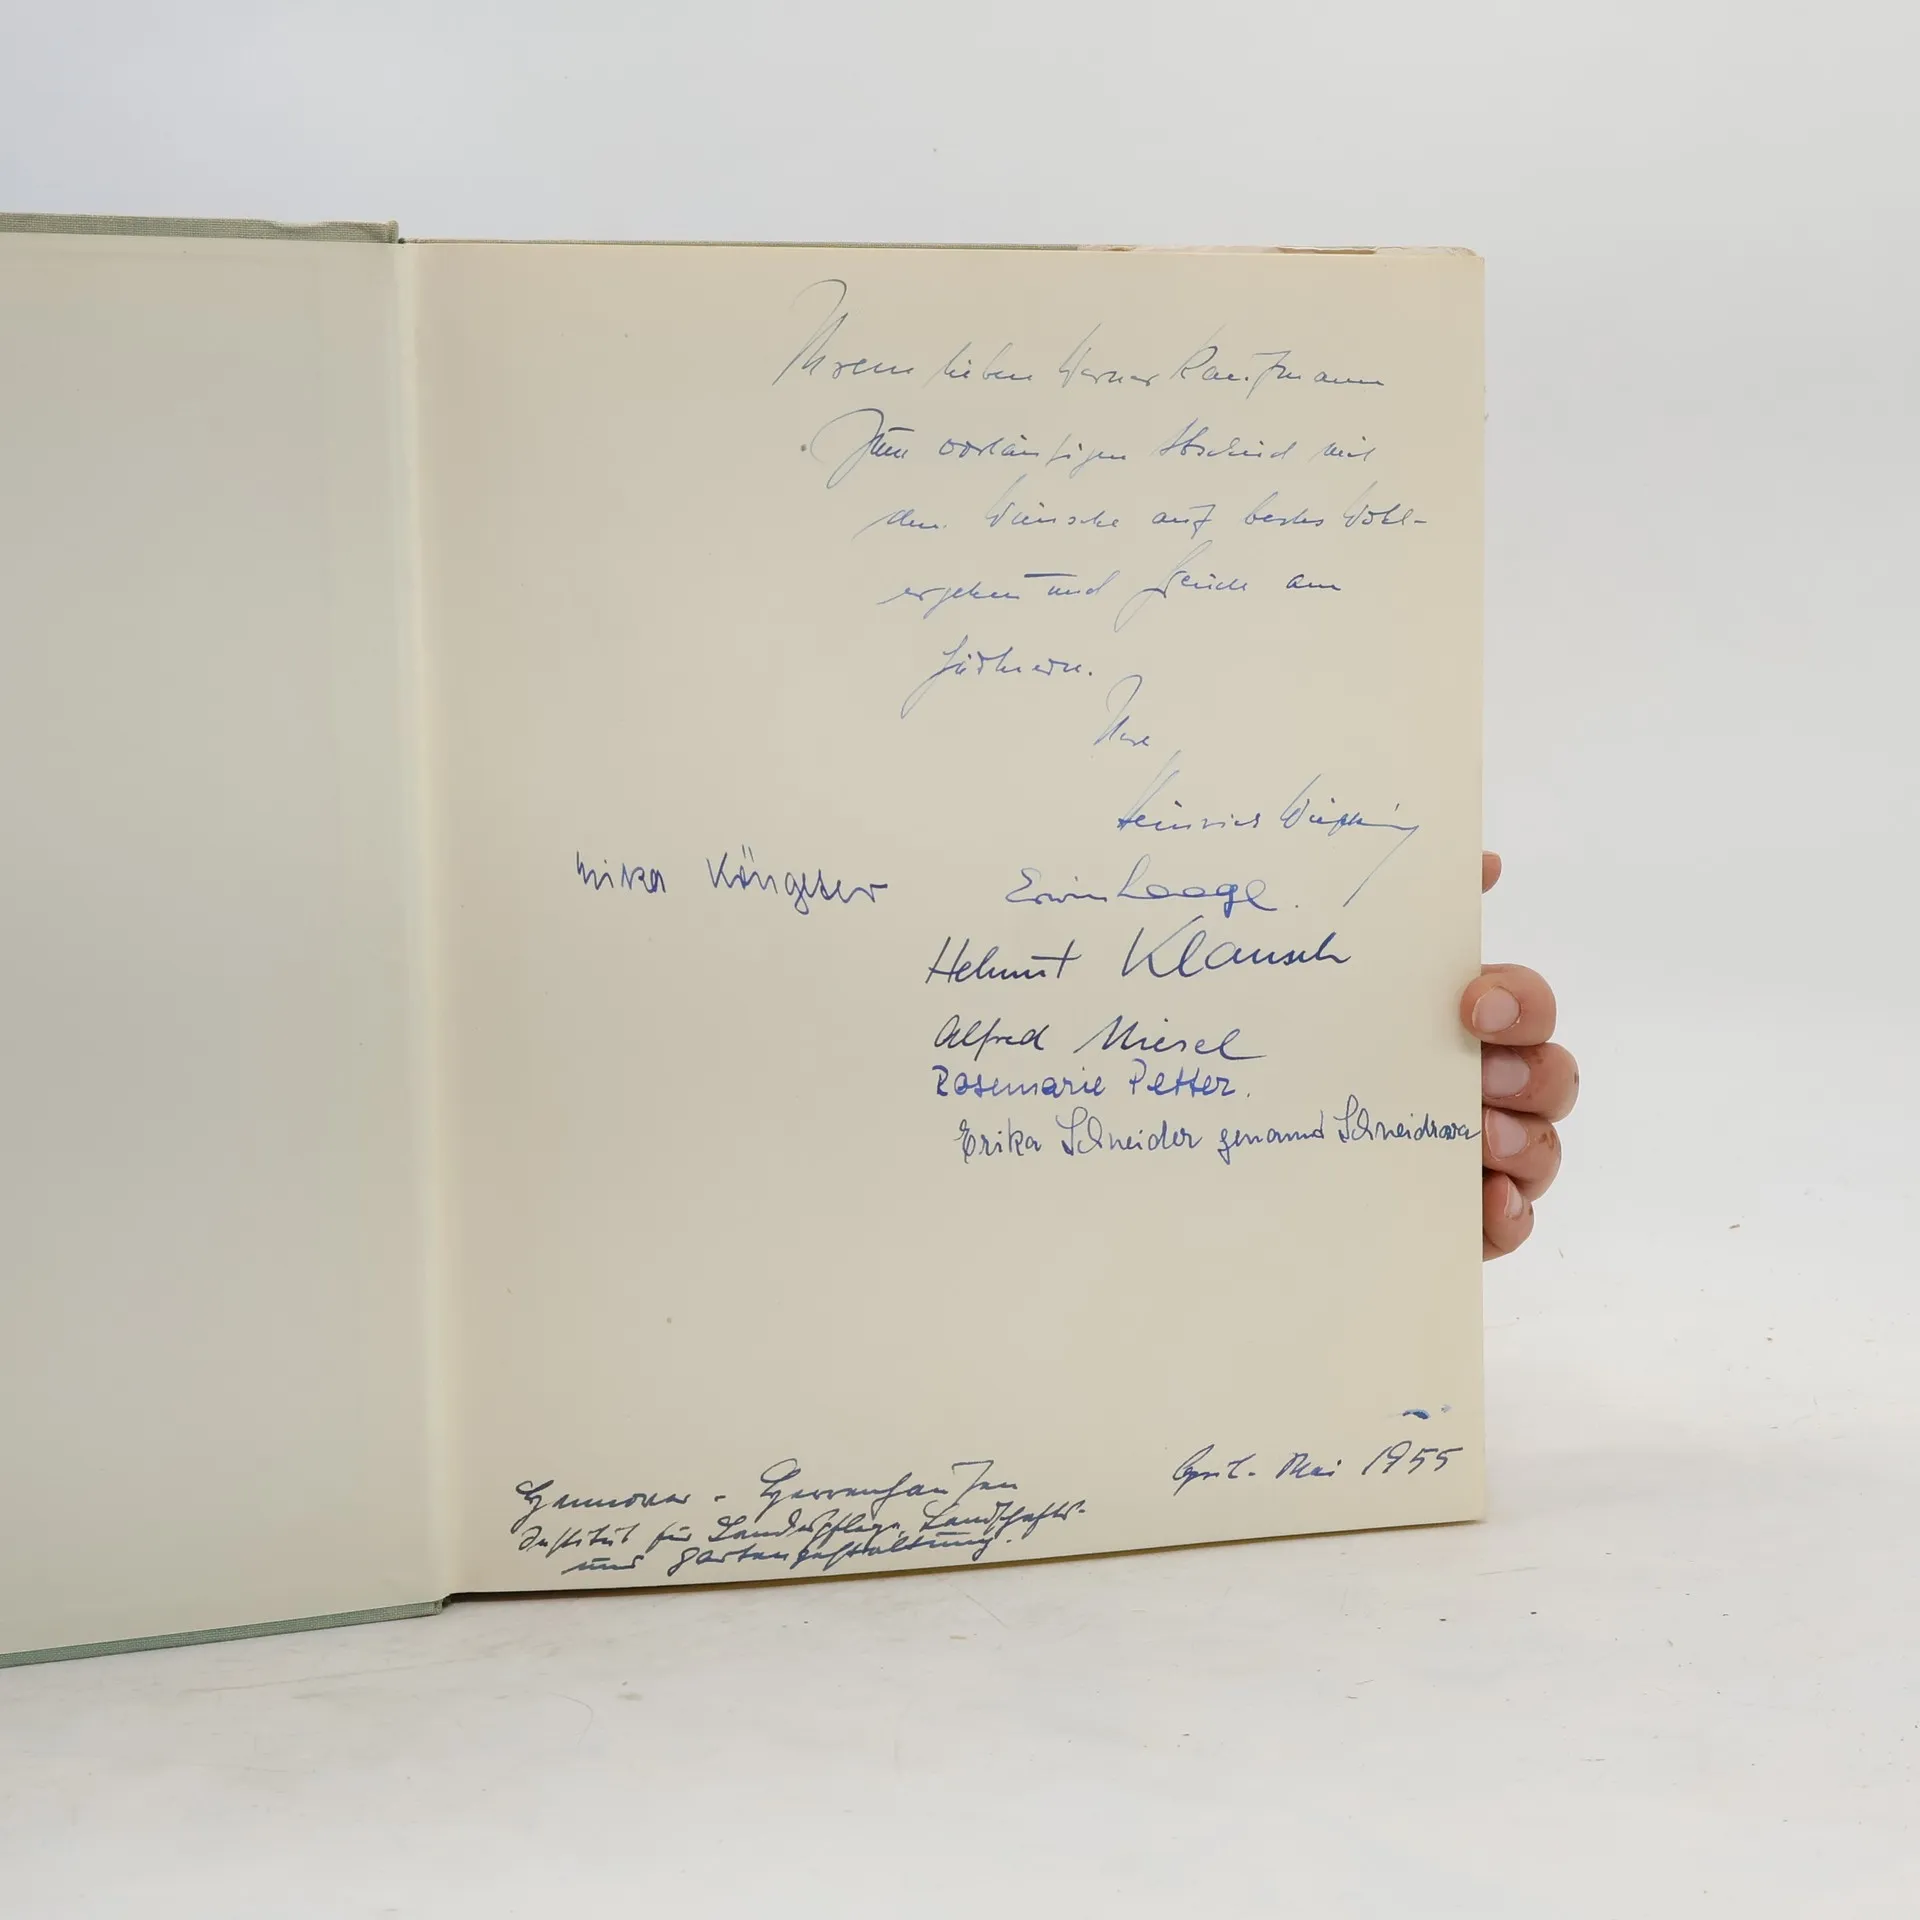 Ihrem lieben Werner Kaufmann
Zum vorläufigen Abschied mit
den Wünschen auf bestes Wohl-
ergehen und Freude am
Gärtnern.
Ihre
Heinrich Wiepking
Mika Köngeter
Erwin Laage.
Helmut Klausch
Alfred Miesel
Rosemarie Petter.
Erika Schneider genannt Schneidrowa
April - Mai 1955
Hannover - Herrenhausen
Institut für Landespflege, Landschafts-
und Gartengestaltung.